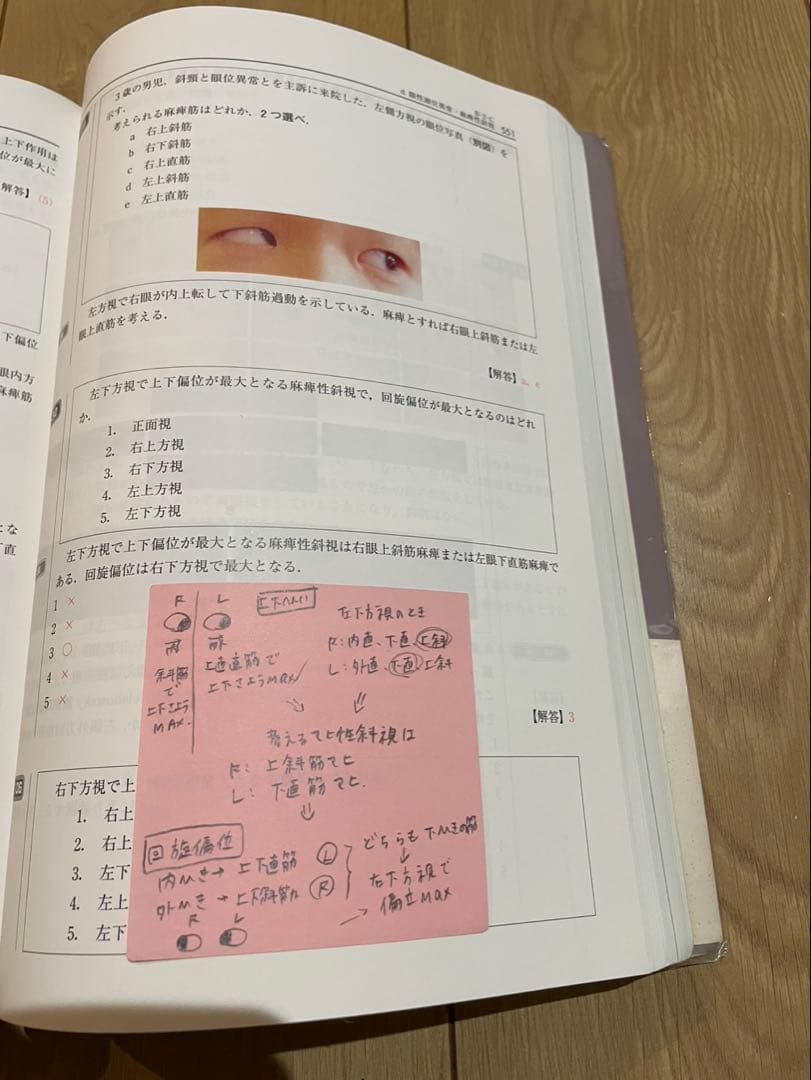 上下作用は
位が最大に
解答】(5)
下偏位
眼内方
麻痺筋
にな
下直
551
3歳の男児．斜頸と眼位異常とを主訴に来院した．左側方視の眼位写真（別図）を
示す．
考えられる麻痺筋はどれか．2つ選べ．
a 右上斜筋
b 右下斜筋
c 右上直筋
d 左上斜筋
e 左上直筋
左方視で右眼が内上転して下斜筋過動を示している．麻痺とすれば右眼上斜筋または左
眼上直筋を考える．
【解答】a, e
左下方視で上下偏位が最大となる麻痺性斜視で，回旋偏位が最大となるのはどれ
か．
1. 正面視
2. 右上方視
3. 右下方視
4. 左上方視
5. 左下方視
左下方視で上下偏位が最大となる麻痺性斜視は右眼上斜筋麻痺または左眼下直筋麻痺で
ある．回旋偏位は右下方視で最大となる．
1 ×
2 ×
3 ○
4 ×
5 ×
【解答】3
R L 上下へんい
内
斜筋
で
上下さよう
MAX.
直筋で
上下さようMAX
左下方視のとき
R：内直、下直、上斜
L：外直、下直、上斜
考えるてヒ性斜視は
R： 上斜筋てヒ
L： 下直筋てヒ.
回旋偏位
内むき→上下直筋 Ⓛ
外むき→上下斜筋 Ⓡ
R L
どちらも下むきの筋
↓
右下方視で
偏位MAX
右下方視で上
1. 右上
2. 右上
3. 左下
4. 左上
5. 左下